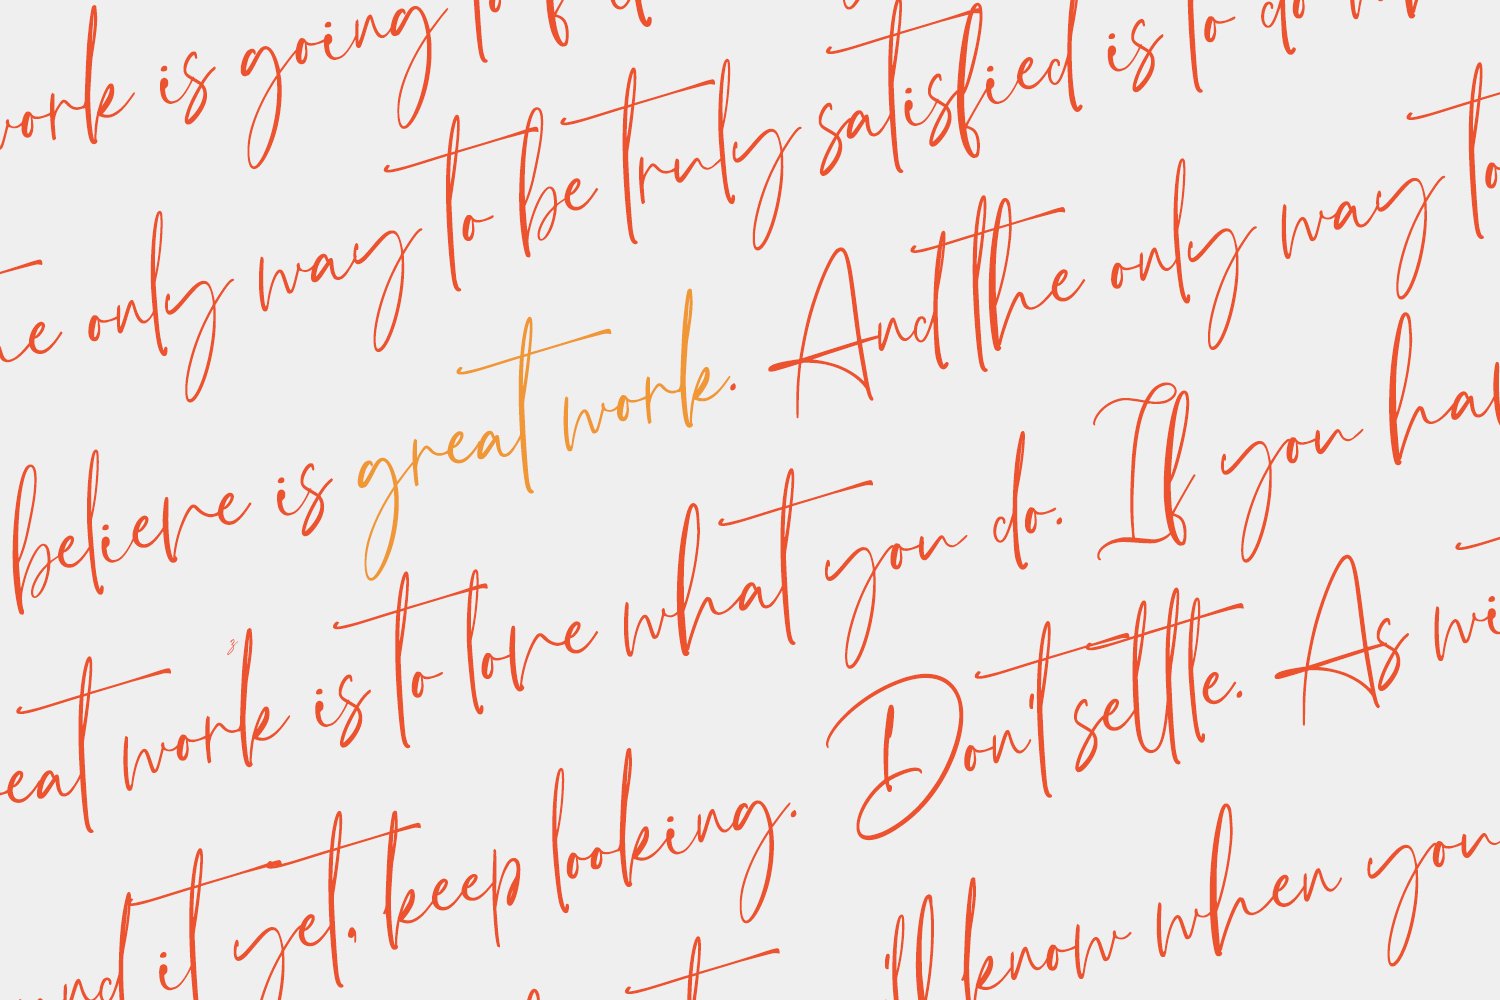 work is going to
only way to be truly satisfied is to do
believe is great work. And the only way to
eat work is to love what you do. If you ha
nd it yet, keep looking. Don't settle. As wi
'll know when you